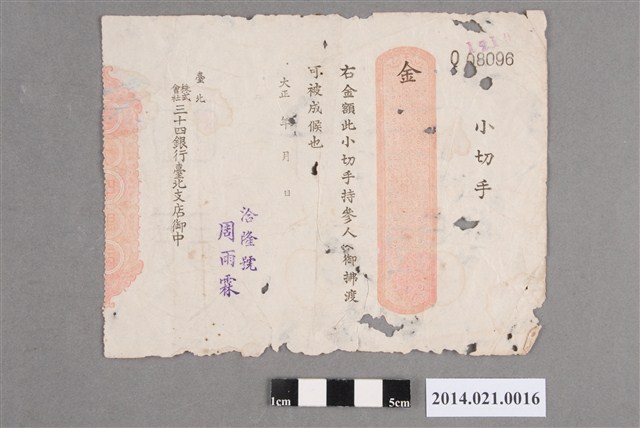 008096
小切手
金
右金額此小切手持參人へ御拂渡
可被成候也
大正 年 月 日
洽隆號
周雨霖
臺北
株式會社三十四銀行臺北支店御中
1cm
5cm
2014.021.0016